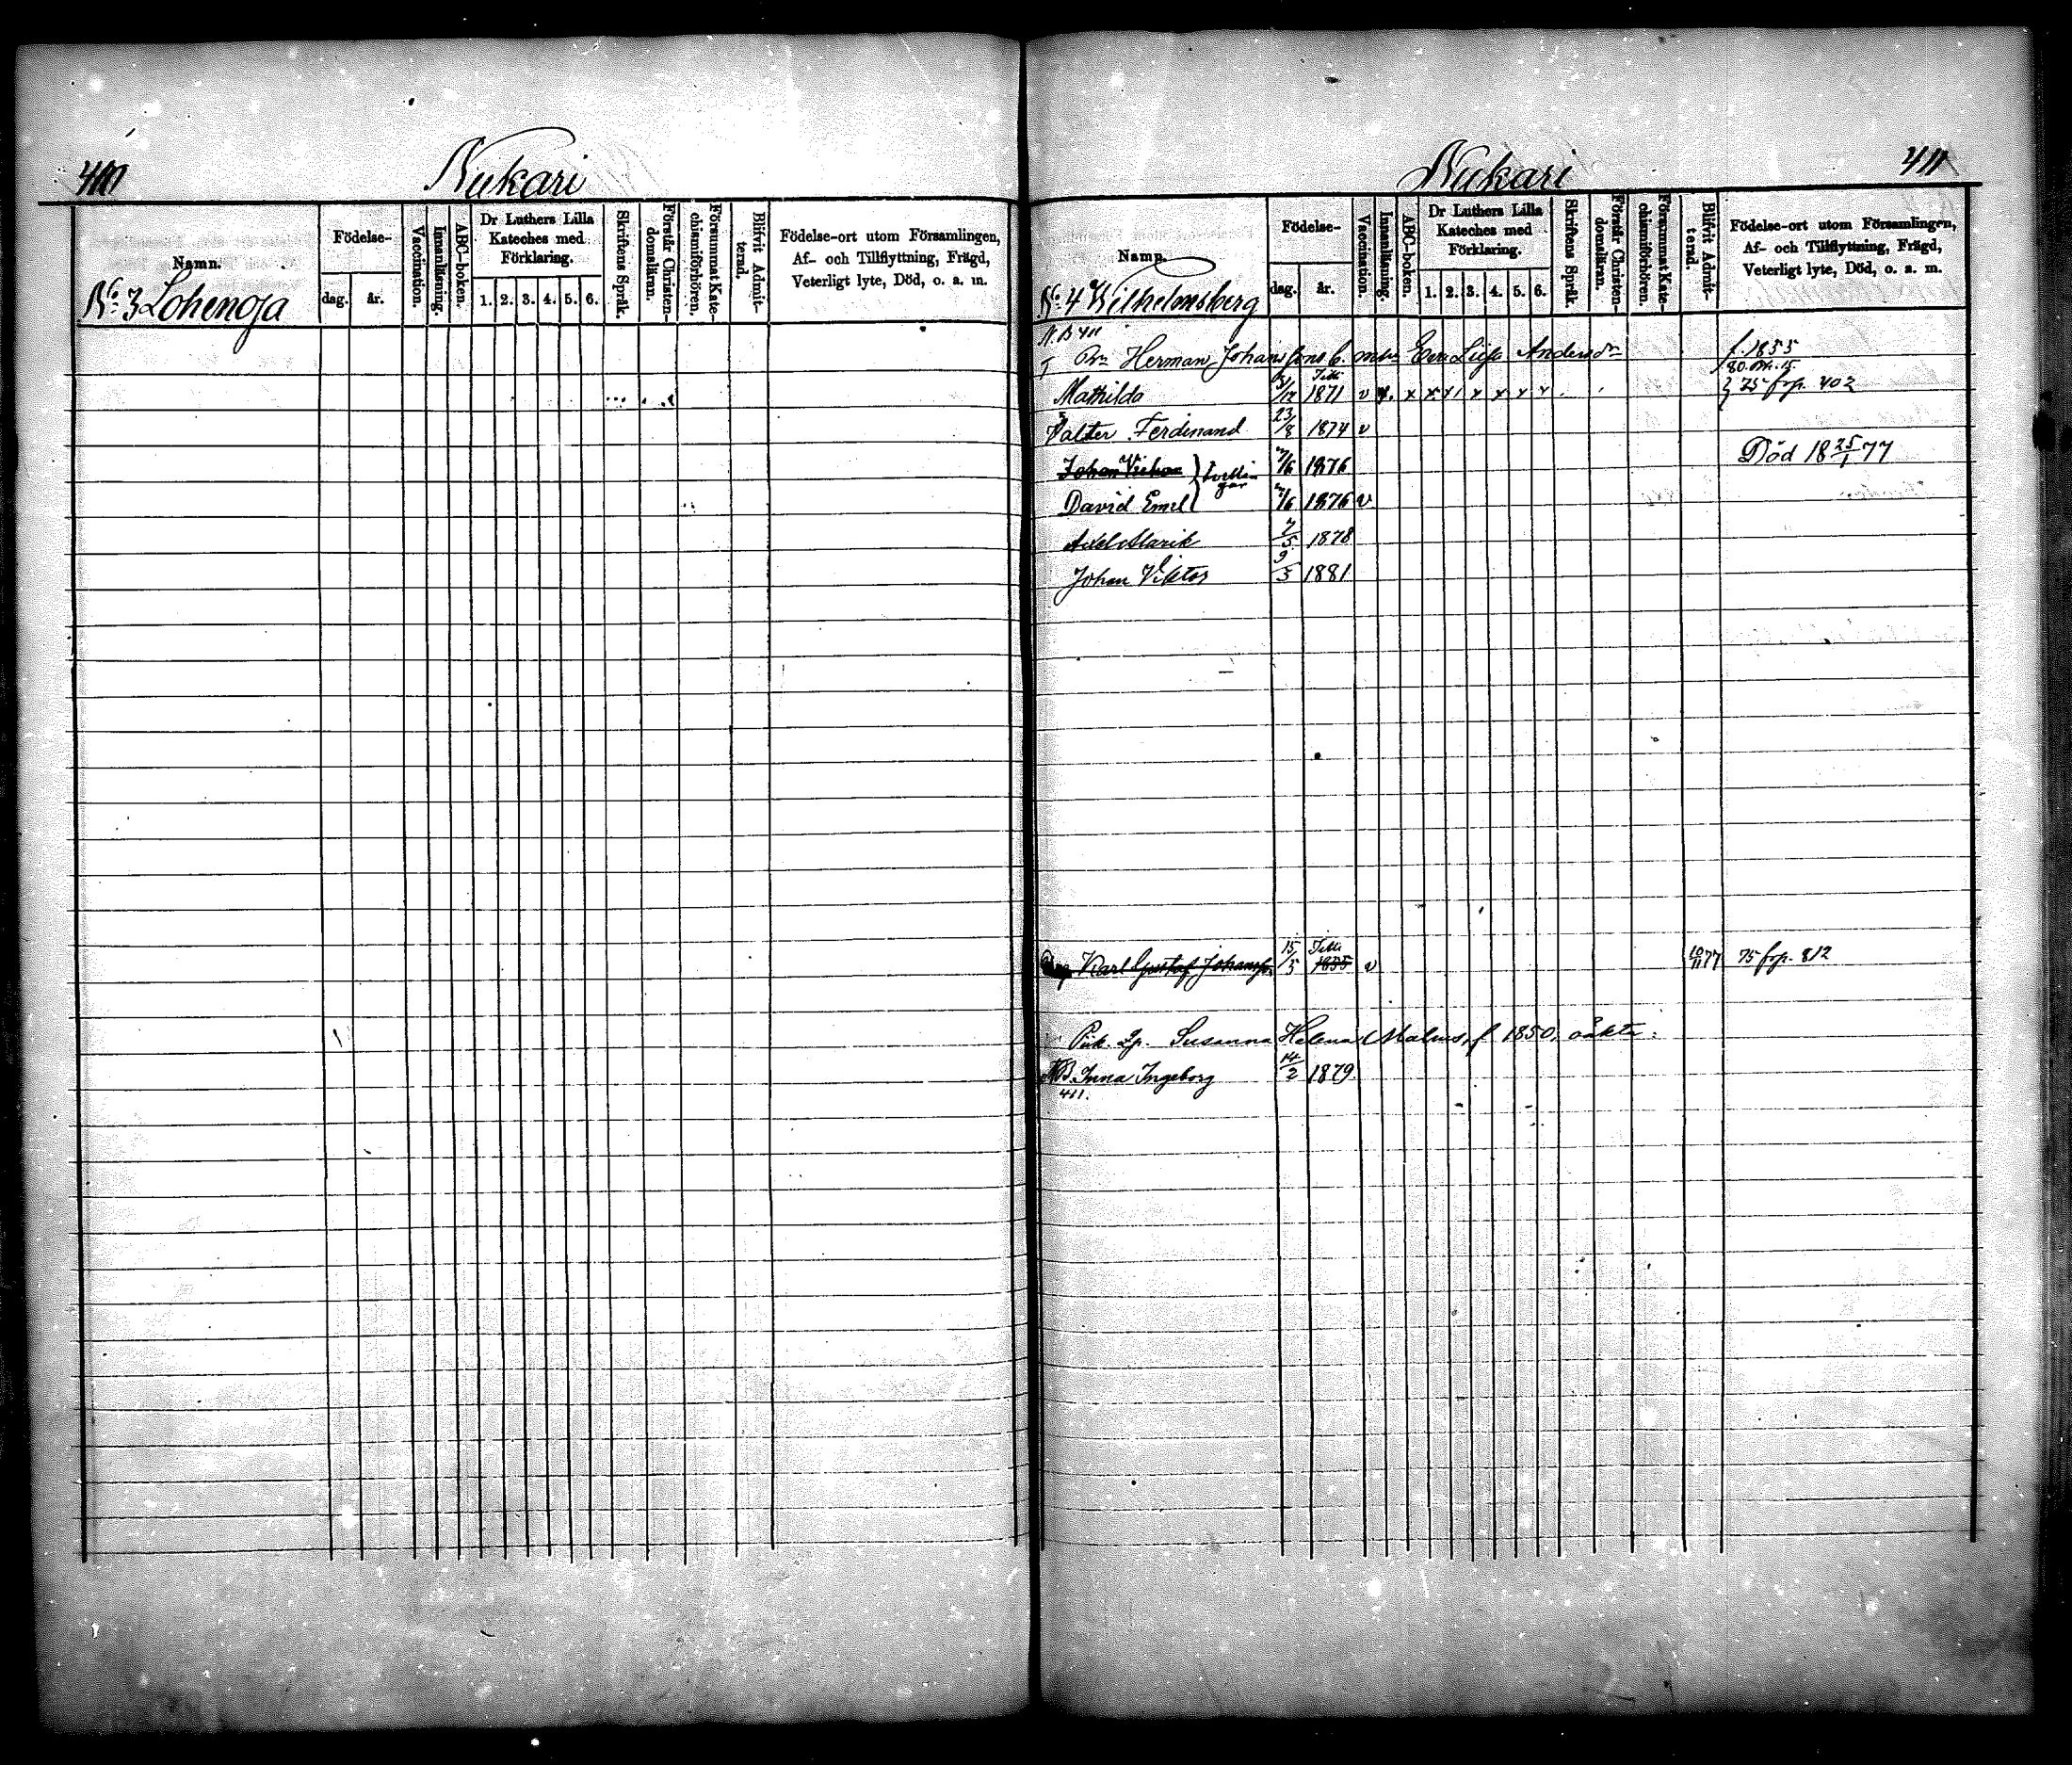 Nukari
Namn.
Födelse-
dag. år.
Vaccination.
Innanläsning.
ABC-boken.
Dr Luthers Lilla Kateches med Förklaring.
1. 2. 3. 4. 5. 6.
Skriftens Språk.
Förstår Christendomsläran.
Försummat Katechismiförhören.
Blifvit Admitterad.
Födelse-ort utom Församlingen,
Af- och Tillflyttning, Frägd,
Veterligt lyte, Död, o. a. m.
No 3 Lohenoja
411
Nukari
Namn.
Födelse-
dag. år.
Vaccination.
Innanläsning.
ABC-boken.
Dr Luthers Lilla Kateches med Förklaring.
1. 2. 3. 4. 5. 6.
Skriftens Språk.
Förstår Christendomsläran.
Försummat Katechismiförhören.
Blifvit Admitterad.
Födelse-ort utom Församlingen,
Af- och Tillflyttning, Frägd,
Veterligt lyte, Död, o. a. m.
No 4 Wilhelmsberg
N.B 411
Herman Johansson Eva Lisa Andersdr f. 1855
Mathilda 1871 v x x x x x x 75 frp. 402
Valter Ferdinand 23/8 1874 v
Johan Viktor 7/6 1876 Död 18 25/1 77
David Emil 7/6 1876 v
Axel Alarik 7/5 1878
Johan Viktor 9/5 1881
Karl Gustaf Johansson 15/5 1855 v 10/11 77 75 frp. 812
Pik. Susanna Helena Malms, f 1850, oäkta:
NB. Inna Ingeborg 14/2 1879.
411.